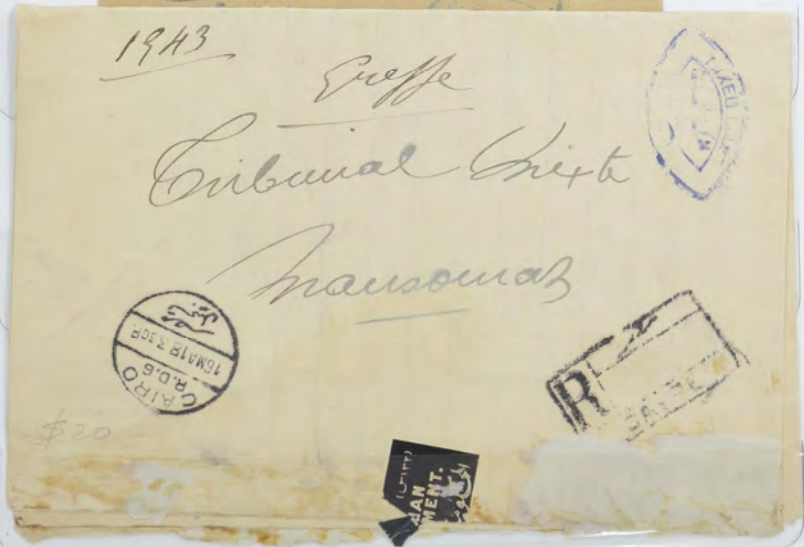 1943
Greffe
Tribunal Mixte
Mansourah
CAIRO
R.D.6
16 MA 18 3 30 P.
R
CAIRO
$20
AN
MENT.